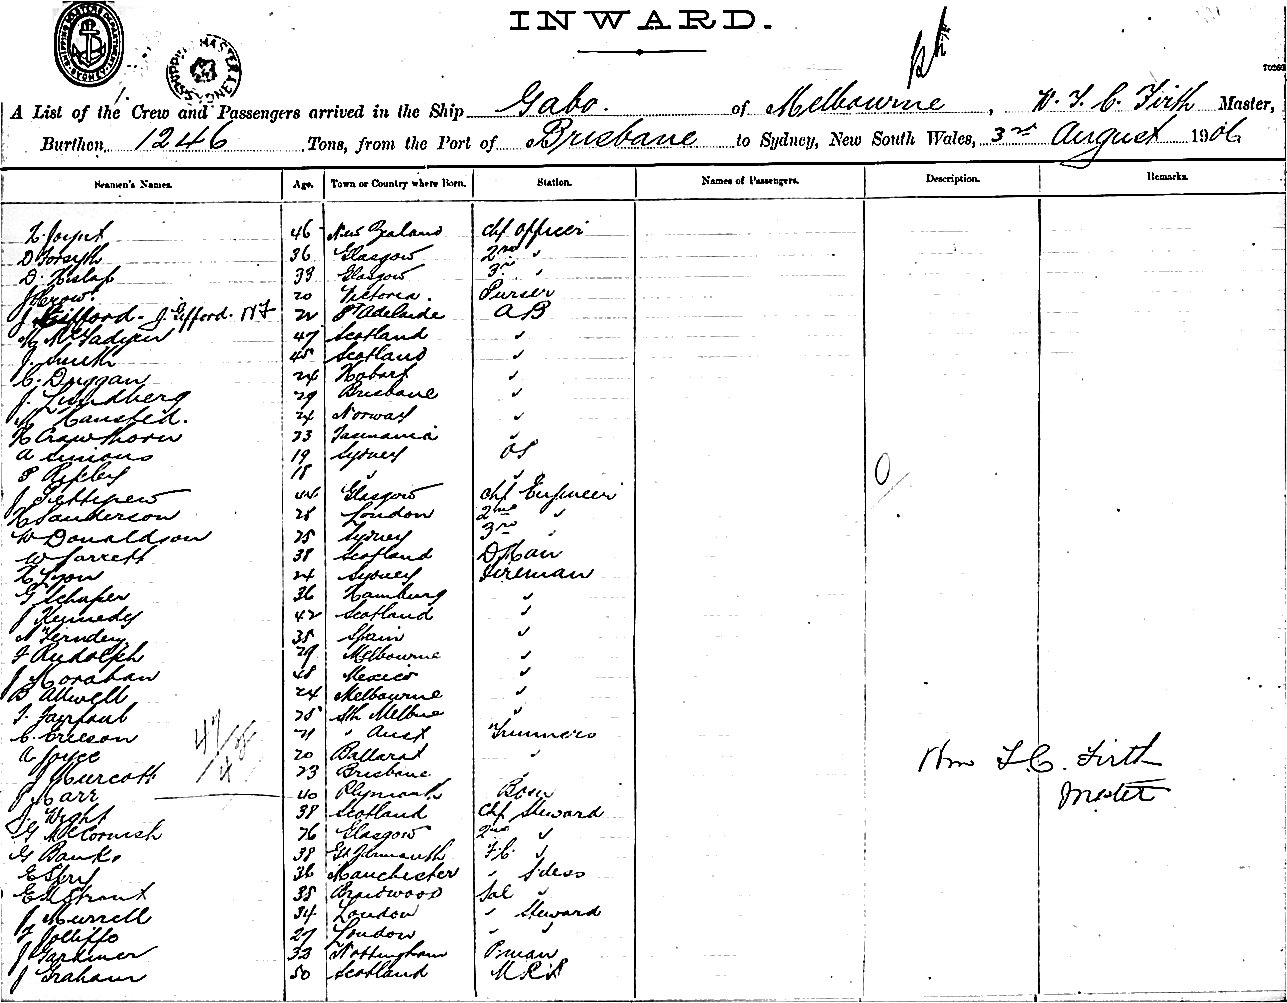 INWARD.
A List of the Crew and Passengers arrived in the Ship Gabo. of Melbourne, W. F. C. Firth Master,
Burthen 1246 Tons, from the Port of Brisbane to Sydney, New South Wales, 3rd August 1906
Seamen's Names. Age. Town or Country where Born. Station. Names of Passengers. Description. Remarks.
46 New Zealand Chf Officer
D Forsyth 36 Glasgow 2nd "
D. Hislop 33 Glasgow 3rd "
J Crow. 20 Victoria. Purser
J Gifford - J. Gifford. Pt Adelaide AB
McFadyen 47 Scotland "
J. Smith 45 Scotland "
C. Duggan 24 Hobart "
J. Lundberg 29 Brisbane "
24 Norway "
H Crawthorn 23 Tasmania "
A Simions 19 Sydney OS
P Ripley 18 " "
J Pettigrew 44 Glasgow Chf Engineer
H Sanderson 28 London 2nd "
W Donaldson 25 Sydney 3rd "
W Jarrett 38 Scotland DMan
H Lyon 24 Sydney Fireman
G Schaper 36 Hamburg "
J Kennedy 42 Scotland "
35 Spain "
F Rudolph 29 Melbourne "
J Monahan 48 Mexico "
B Attwell 24 Melbourne "
25 Sth Melbne "
21 " Aust Trimmers
A Joyce 20 Ballarat "
J Murcott 23 Brisbane "
P Marr 40 Plymouth Bosn
J. Wight 38 Scotland Chf Steward
G McCormish 26 Glasgow 2nd "
G Banks 38 Gt Yarmouth F.C "
E Spry 36 Manchester " Stdess
E Armstrong 38 Braidwood Sal "
J Murrell 34 London " Steward
F Jolliffe 27 London " "
J Gardiner 33 Nottingham Pman
J Graham 50 Scotland
47
Wm F. C. Firth
Master